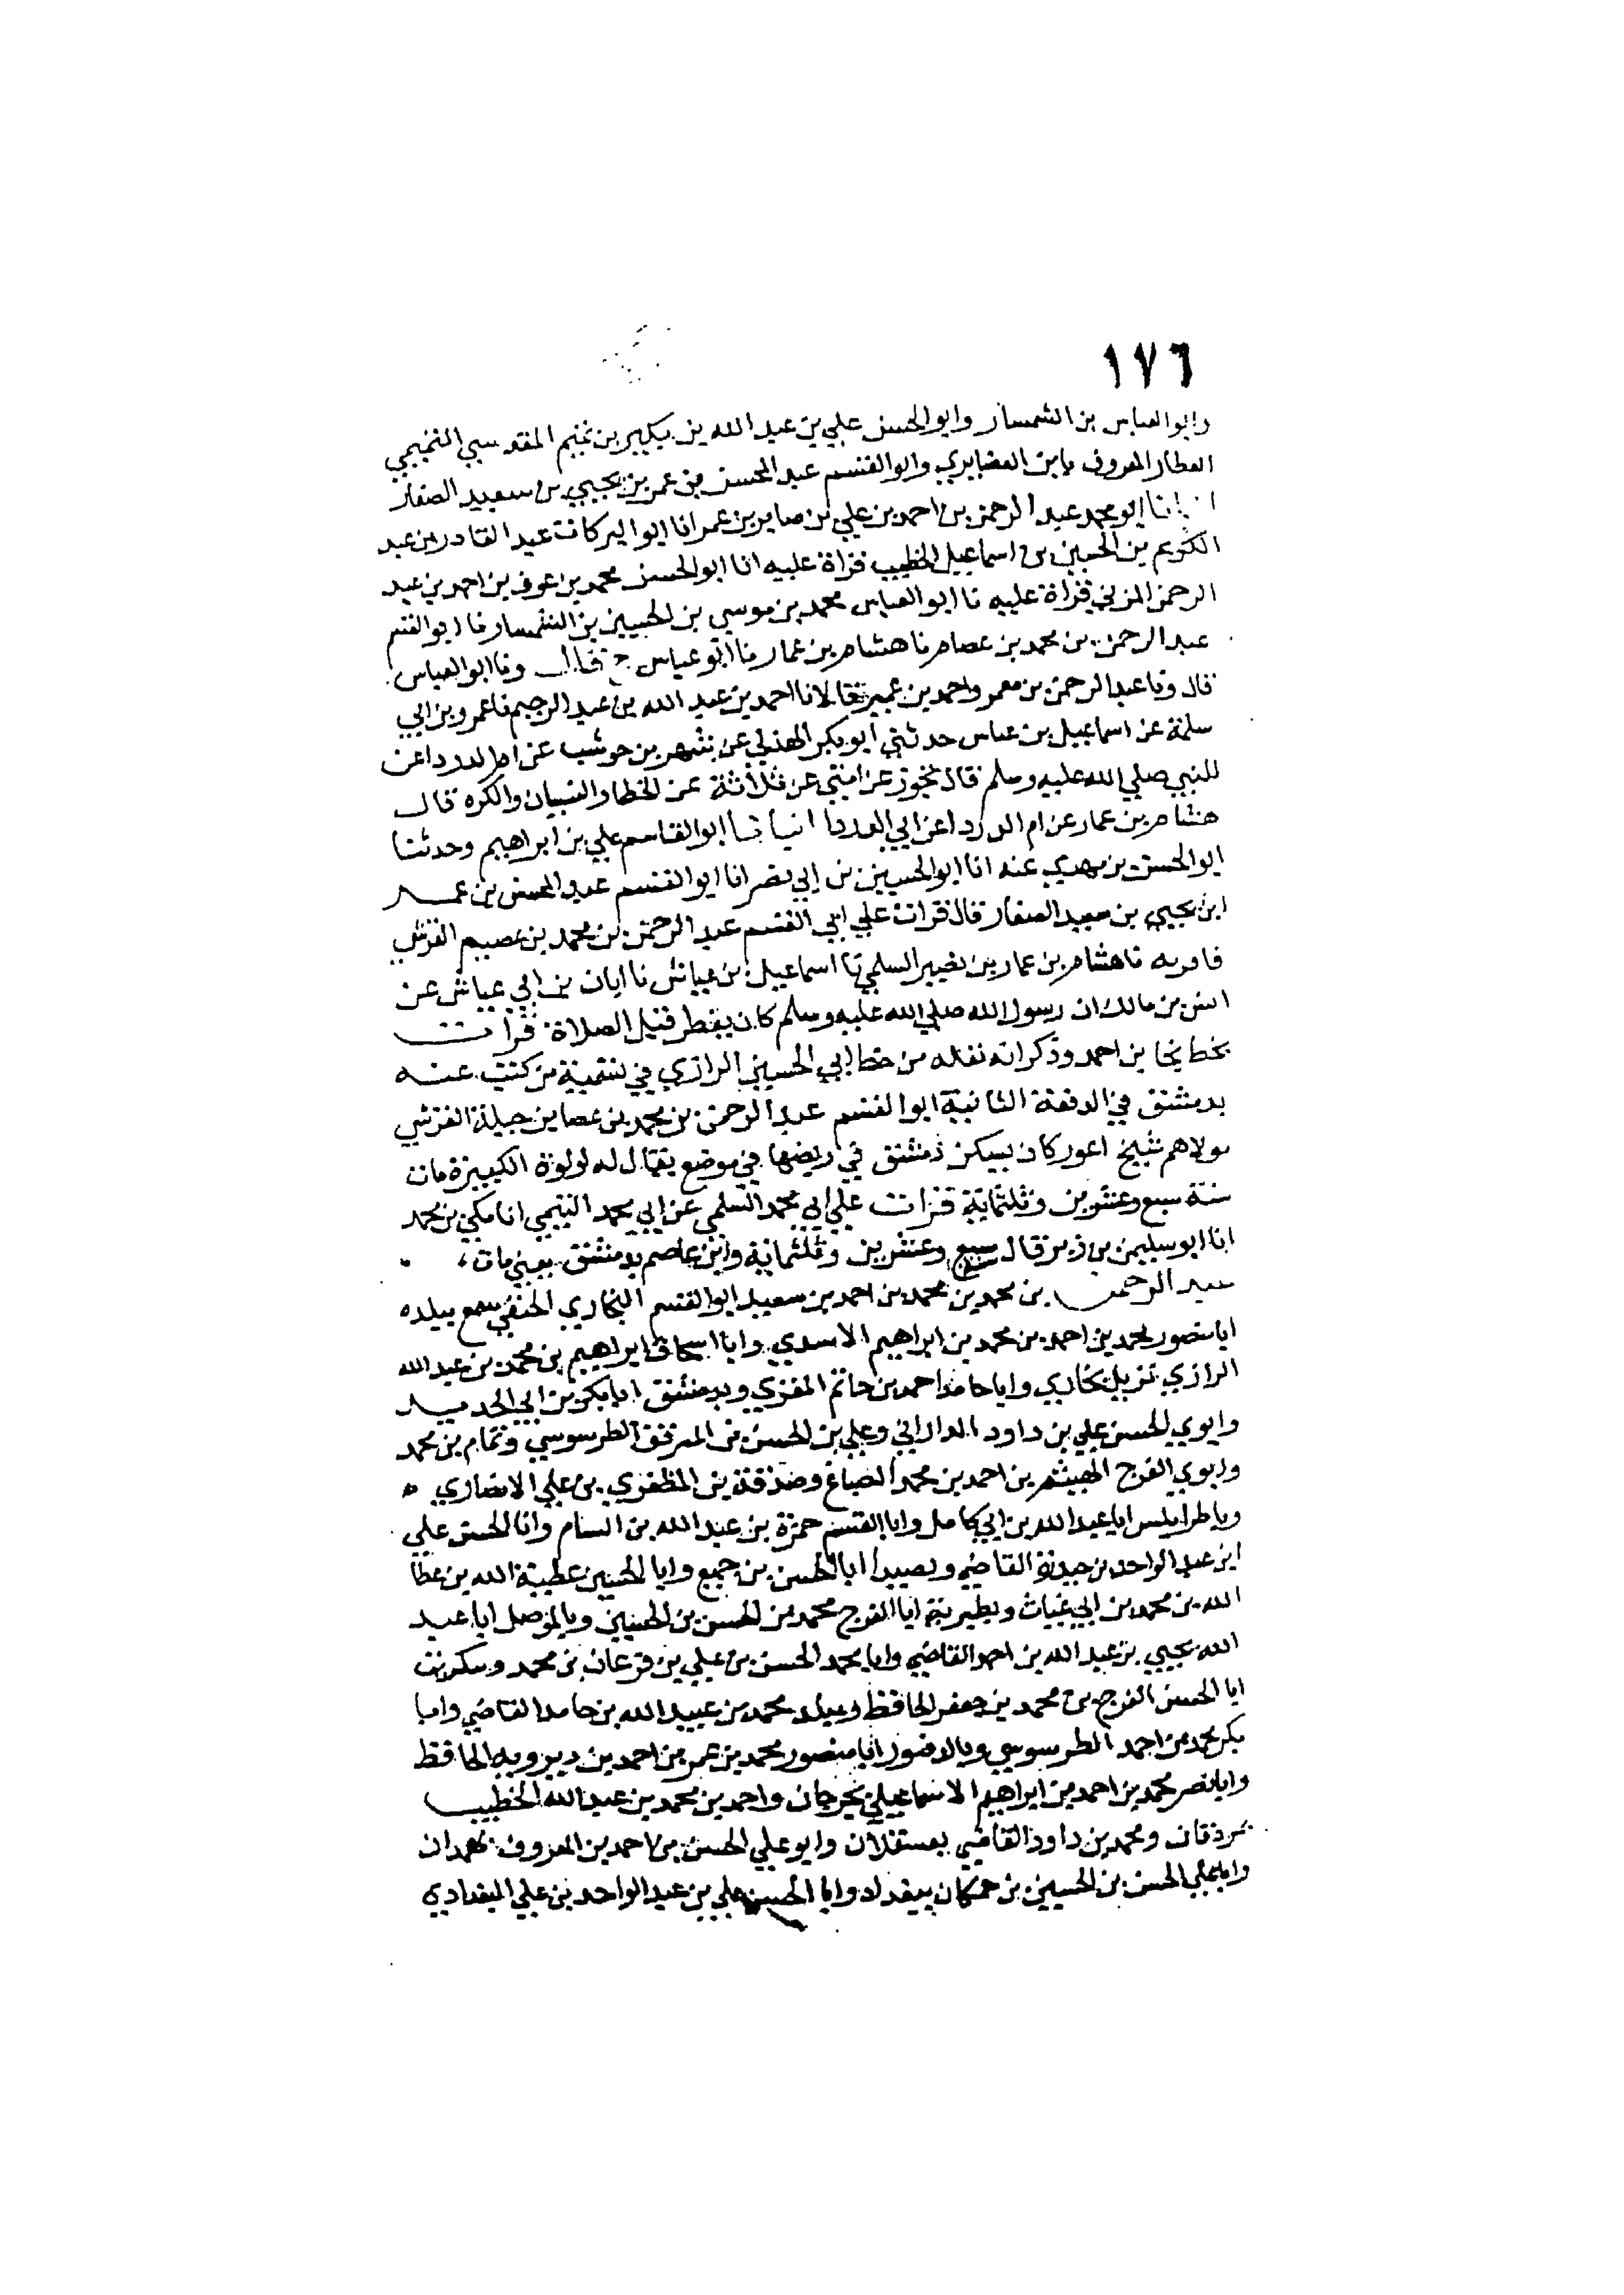 ١٧٦
وابو العباس بن الشمسار وابو الحسن علي بن عبد الله بن بكير بن تميم المقدسي التميمي
العطار المعروف بابن الغضايري وابو القسم عبد المحسن بن عمر بن يحيي بن سعيد الصفار
انبانا ابو محمد عبد الرحمن بن احمد بن علي بن صابر بن عمر انا ابو البركات عبد القادر بن عبد
الكريم بن الحسين بن اسماعيل الخطيب قراة عليه انا ابو الحسن محمد بن عوف بن احمد بن عبد
الرحمن المزني قراة عليه نا ابو العباس محمد بن موسي بن الحسين بن الشمسار نا ابو القسم
عبد الرحمن بن محمد بن عصام نا هشام بن عمار نا ابو عياس ح قال ونا ابو العباس
قال ونا عبد الرحمن بن معمر واحمد بن عمير قالا نا احمد بن عبد الله بن عبد الرحيم نا عمرو بن ابي
سلمة عن اسماعيل بن عياس حدثني ابو بكر الهذلي عن شهر بن حوشب عن ام الدرداعن
النبي صلي الله عليه وسلم قال تجوز عن امتي عن ثلاثة عن الخطا والنسيان والكره قال
هشام بن عمار عن ام الدرداعن ابي الدردا انبانا ابو القاسم علي بن ابراهيم وحدثنا
ابو الحسن بن مهدي عنه انا ابو الحسين بن ابي نصر انا ابو القسم عبد المحسن بن عمر
ابن يحيي بن سعيد الصفار قال قرات علي ابي القسم عبد الرحمن بن محمد بن عصيم القرشي
فاقر به نا هشام بن عمار بن نصير السلمي نا اسماعيل بن عياش نا ابان بن ابي عياش عن
انس بن مالك ان رسول الله صلي الله عليه وسلم كان يفطر قبل الصلاة قرات
بخط نجا بن احمد وذكر انه نقله من خط ابي الحسين الرازي في تسمية من كتب عنه
بدمشق في الدفعة الثانية ابو القسم عبد الرحمن بن محمد بن عصا بن جبلة القرشي
مولاهم شيخ اعور كان يسكن دمشق في ربضها في موضع يقال له لولوة الكبيرة مات
سنة سبع وعشرين وثلثماية قرات علي ابي محمد السلمي عن ابي محمد التيمي انا مكي بن محمد
انا ابو سليمن بن زبر قال سبع وعشرين وثلثماية وابن عاصم بدمشق يعني مات
عبد الرحمن بن محمد بن محمد بن احمد بن سعيد ابو القسم البخاري الحنفي سمع ببلده
ابا منصور محمد بن احمد بن محمد بن ابراهيم الاسدي وابا اسحاق ابراهيم بن محمد بن عبد الله
الرازي نزيل بخاري وابا حامد احمد بن حاتم المقري وبدمشق ابا بكر بن ابي الحديد
وابوي الحسن علي بن داود الداراني وعلي بن الحسن بن الطرسوسي وتمام بن محمد
وابوي الفرج الهيثم بن احمد بن محمد الصباغ وصدقة بن المظفري بن علي الانصاري
وباطرابلس ابا عبد الله بن ابي كامل وابا القسم حمزة بن عبد الله بن السام وابا الحسن علي
ابن عبد الواحد بن حيدرة القاضي وبصيدا ابا الحسن بن جميع وابا الحسين عطية الله بن عطا
الله بن محمد بن ابي غياث وبطبرية ابا الفرج محمد بن الحسن بن الحسين وبالموصل ابا عبد
الله يحيي بن عبد الله بن احمد القاضي وابا محمد الحسن بن علي بن قزعان بن محمد وبتكريت
ابا الحسن الفرج بن محمد بن جعفر الحافظ وببلد محمد بن عبيد الله بن حامد القاضي وابا
بكر محمد بن احمد الطرسوسي ابا منصور محمد بن عمر بن احمد بن ديزويه الحافظ
وابا نصر محمد بن احمد بن ابراهيم الاسماعيلي بجرجان واحمد بن محمد بن عبد الله الخطيب
ومحمد بن داود القاضي بعسقلان وابو علي الحسن بن احمد بن المعروف بهمدان
وابا علي الحسن بن الحسين بن حمكان ببغداد وابا الحسن علي بن عبد الواحد بن علي البغدادي